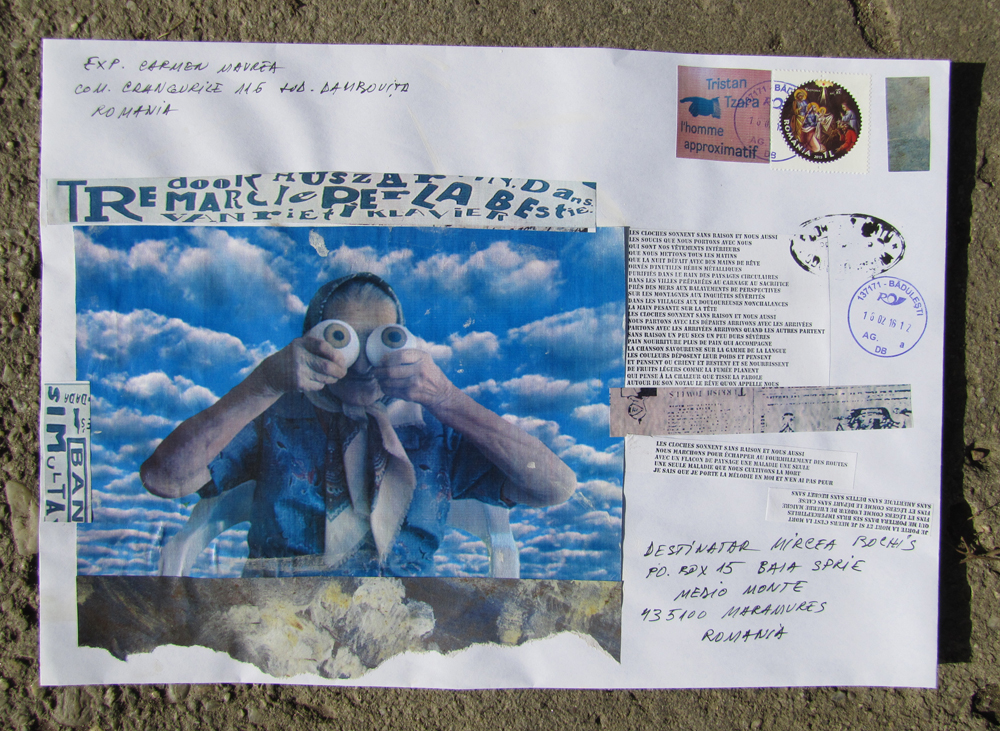 EXP. CARMEN MAVREA
COM. CRANGURILE 116 JUD. DAMBOVIȚA
ROMANIA
Tristan
Tzara
l'homme
approximatif
ROMÂNIA
1L
137171 - BĂDU
AG.
DB
door HUSZAR
TREMARCIE DER LA BEStie.
Dans
VAN rieti KLAVIER
DADA
BAN
SIMULTA
LES CLOCHES SONNENT SANS RAISON ET NOUS AUSSI
LES SOUCIS QUE NOUS PORTONS AVEC NOUS
QUI SONT NOS VÊTEMENTS INTÉRIEURS
QUE NOUS METTONS TOUS LES MATINS
QUE LA NUIT DÉFAIT AVEC DES MAINS DE RÊVE
ORNÉS D'INUTILES RÉBUS MÉTALLIQUES
PURIFIÉS DANS LE BAIN DES PAYSAGES CIRCULAIRES
DANS LES VILLES PRÉPARÉES AU CARNAGE AU SACRIFICE
PRÈS DES MERS AUX BALAYEMENTS DE PERSPECTIVES
SUR LES MONTAGNES AUX INQUIÈTES SÉVÉRITÉS
DANS LES VILLAGES AUX DOULOUREUSES NONCHALANCES
LA MAIN PESANTE SUR LA TÊTE
LES CLOCHES SONNENT SANS RAISON ET NOUS AUSSI
NOUS PARTONS AVEC LES DÉPARTS ARRIVONS AVEC LES ARRIVÉES
PARTONS AVEC LES ARRIVÉES ARRIVONS QUAND LES AUTRES PARTENT
SANS RAISON UN PEU SECS UN PEU DURS SÉVÈRES
PAIN NOURRITURE PLUS DE PAIN QUI ACCOMPAGNE
LA CHANSON SAVOUREUSE SUR LA GAMME DE LA LANGUE
LES COULEURS DÉPOSENT LEUR POIDS ET PENSENT
ET PENSENT OU CRIENT ET RESTENT ET SE NOURRISSENT
DE FRUITS LÉGERS COMME LA FUMÉE PLANENT
QUI PENSE À LA CHALEUR QUE TISSE LA PAROLE
AUTOUR DE SON NOYAU LE RÊVE QU'ON APPELLE NOUS
137171 - BĂDULEȘTI
10 02 16 12
AG. a
DB
TURKISH TOWELS
LES CLOCHES SONNENT SANS RAISON ET NOUS AUSSI
NOUS MARCHONS POUR ÉCHAPPER AU FOURMILLEMENT DES ROUTES
AVEC UN FLACON DU PAYSAGE UNE MALADIE UNE SEULE
UNE SEULE MALADIE QUE NOUS CULTIVONS LA MORT
JE SAIS QUE JE PORTE LA MÉLODIE EN MOI ET N'EN AI PAS PEUR
JE PORTE LA MORT ET SI JE MEURS C'EST LA MORT
QUI ME PORTERA DANS SES BRAS IMPERCEPTIBLES
FINS ET LÉGERS COMME L'ODEUR DE L'HERBE MAIGRE
FINS ET LÉGERS COMME LE DÉPART SANS CAUSE
SANS AMERTUME SANS DETTES SANS REGRET SANS
DESTINATAR MIRCEA BOCHIS
PO. BOX 15 BAIA SPRIE
MEDIO MONTE
435100 MARAMURES
ROMANIA